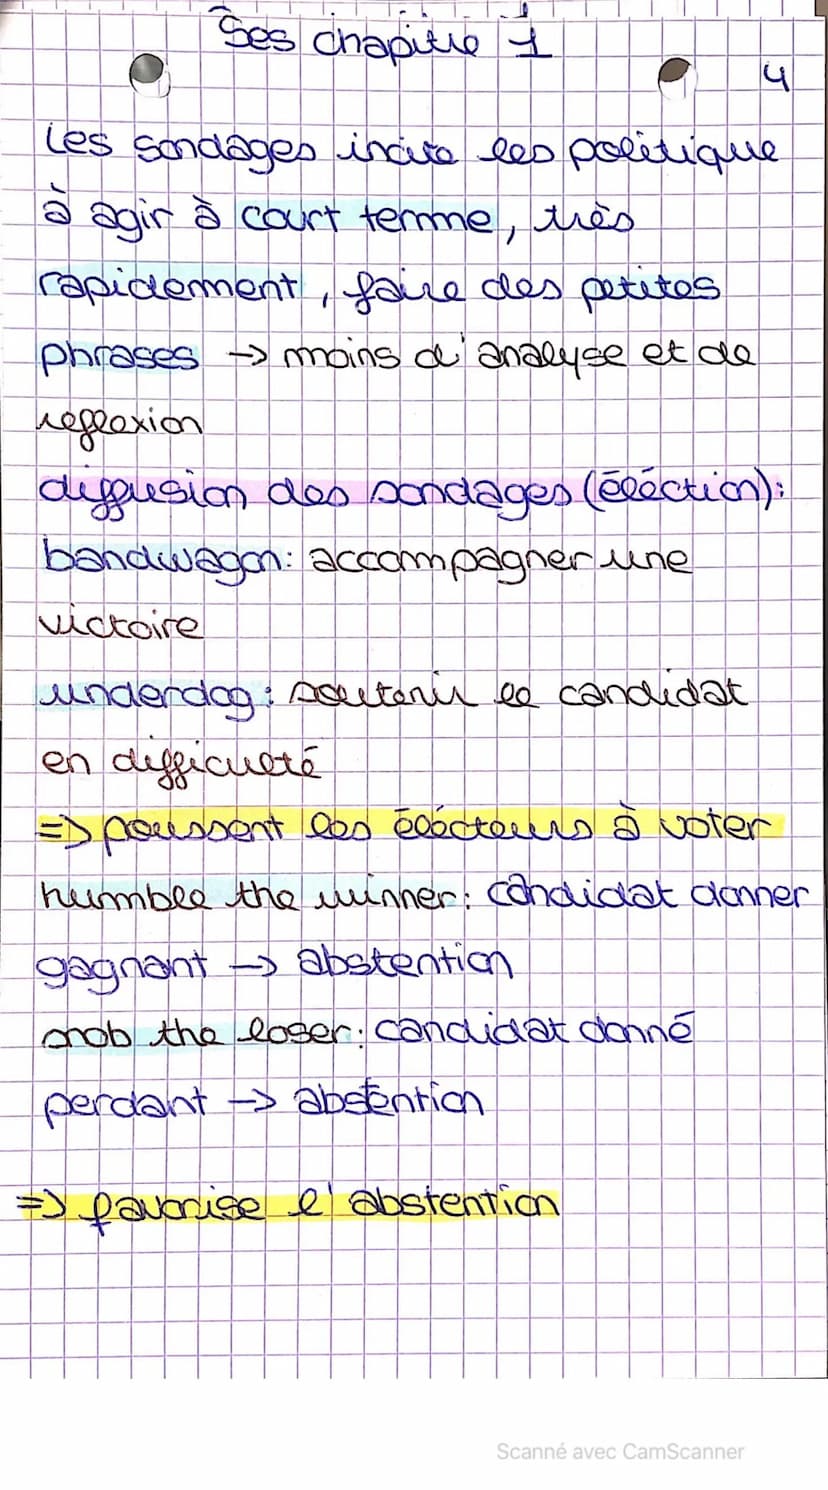 Ses chapitre 1
4
Les sondages incite les politique
à agir à court terme, très
rapidement, faire des petites
phrases → moins d'analyse et de
reflexion
diffusion des sondages (éléction):
bandwagon: accompagner une
victoire
underdog: soutenir le candidat
en difficulté
=> poussent les élécteurs à voter
humble the winner: candidat donner
gagnant → abstention
mob the loser: candidat donné
perdant → abstention
=> favorise l'abstention
Scanné avec CamScanner